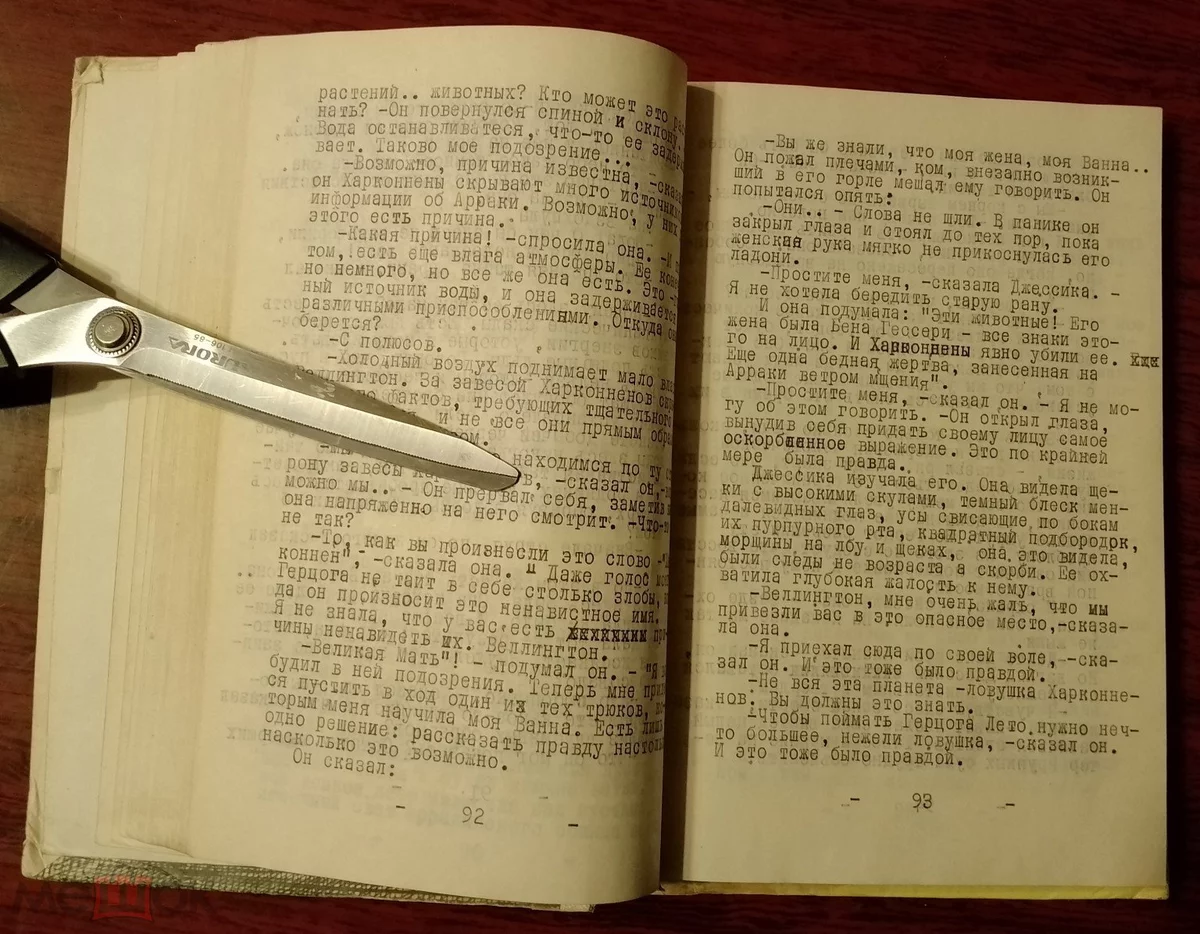 растений.. животных? Кто может это
нать? -Он повернулся спиной и склону.
Вода останавливатеся, что-то ее
вает. Таково мое подозрение...
-Возможно, причина известна,
он Харконнены скрывают много
информации об Арраки. Возможно, у них
этого есть причина.
-Какая причина! -спросила она.
том, есть еще влага атмосферы. Ее
но немного, но все же она есть. Это
ный источник воды, и она задерживается
различными приспособлениями. Откуда
берется?
-С полюсов.
-Холодный воздух поднимает мало
Веллингтон. За завесой Харконненов
фактов, требующих тщательного
и не все они прямым
находимся по ту
рону завесы -сказал он,
можно мы.. - Он прервал себя, заметив
она напряженно на него смотрит.
не так?
-То, как вы произнесли это слово
коннен", -сказала она. " Даже голос
Герцога не таит в себе столько злобы,
да он произносит это ненавистное имя.
Я не знала, что у вас есть
чины ненавидеть их. Веллингтон.
-Великая Мать"! - подумал он. - "Я
будил в ней подозрения. Теперь мне
ся пустить в ход один их тех трюков,
торым меня научила моя Ванна. Есть лишь
одно решение: рассказать правду
насколько это возможно.
Он сказал:
- 92 -
-Вы же знали, что моя жена, моя Ванна..
Он пожал плечами, ком, внезапно возник-
ший в его горле мешал ему говорить. Он
попытался опять:
-Они.. - Слова не шли. В панике он
закрыл глаза и стоял до тех пор, пока
женская рука мягко не прикоснулась его
ладони.
-Простите меня, -сказала Джессика. -
Я не хотела бередить старую рану.
И она подумала: "Эти животные! Его
жена была Бена Гессери - все знаки это-
го на лицо. И Харконнены явно убили ее.
Еще одна бедная жертва, занесенная на
Арраки ветром мщения".
-Простите меня, -сказал он. - Я не мо-
гу об этом говорить. -Он открыл глаза,
вынудив себя придать своему лицу самое
оскорбленное выражение. Это по крайней
мере была правда.
Джессика изучала его. Она видела ще-
ки с высокими скулами, темный блеск мен-
далевидных глаз, усы свисающие по бокам
их пурпурного рта, квадратный подбородрк,
морщины на лбу и щеках, она это видела,
были следы не возраста а скорби. Ее ох-
ватила глубокая жалость к нему.
-Веллингтон, мне очень жаль, что мы
привезли вас в это опасное место,-сказа-
ла она.
-Я приехал сюда по своей воле, -ска-
зал он. И это тоже было правдой.
-Не вся эта планета -ловушка Харконне-
нов. Вы должны это знать.
-Чтобы поймать Герцога Лето нужно неч-
то большее, нежели ловушка, -сказал он.
И это тоже было правдой.
- 93 -
AURORA
106-85
МЕШОК